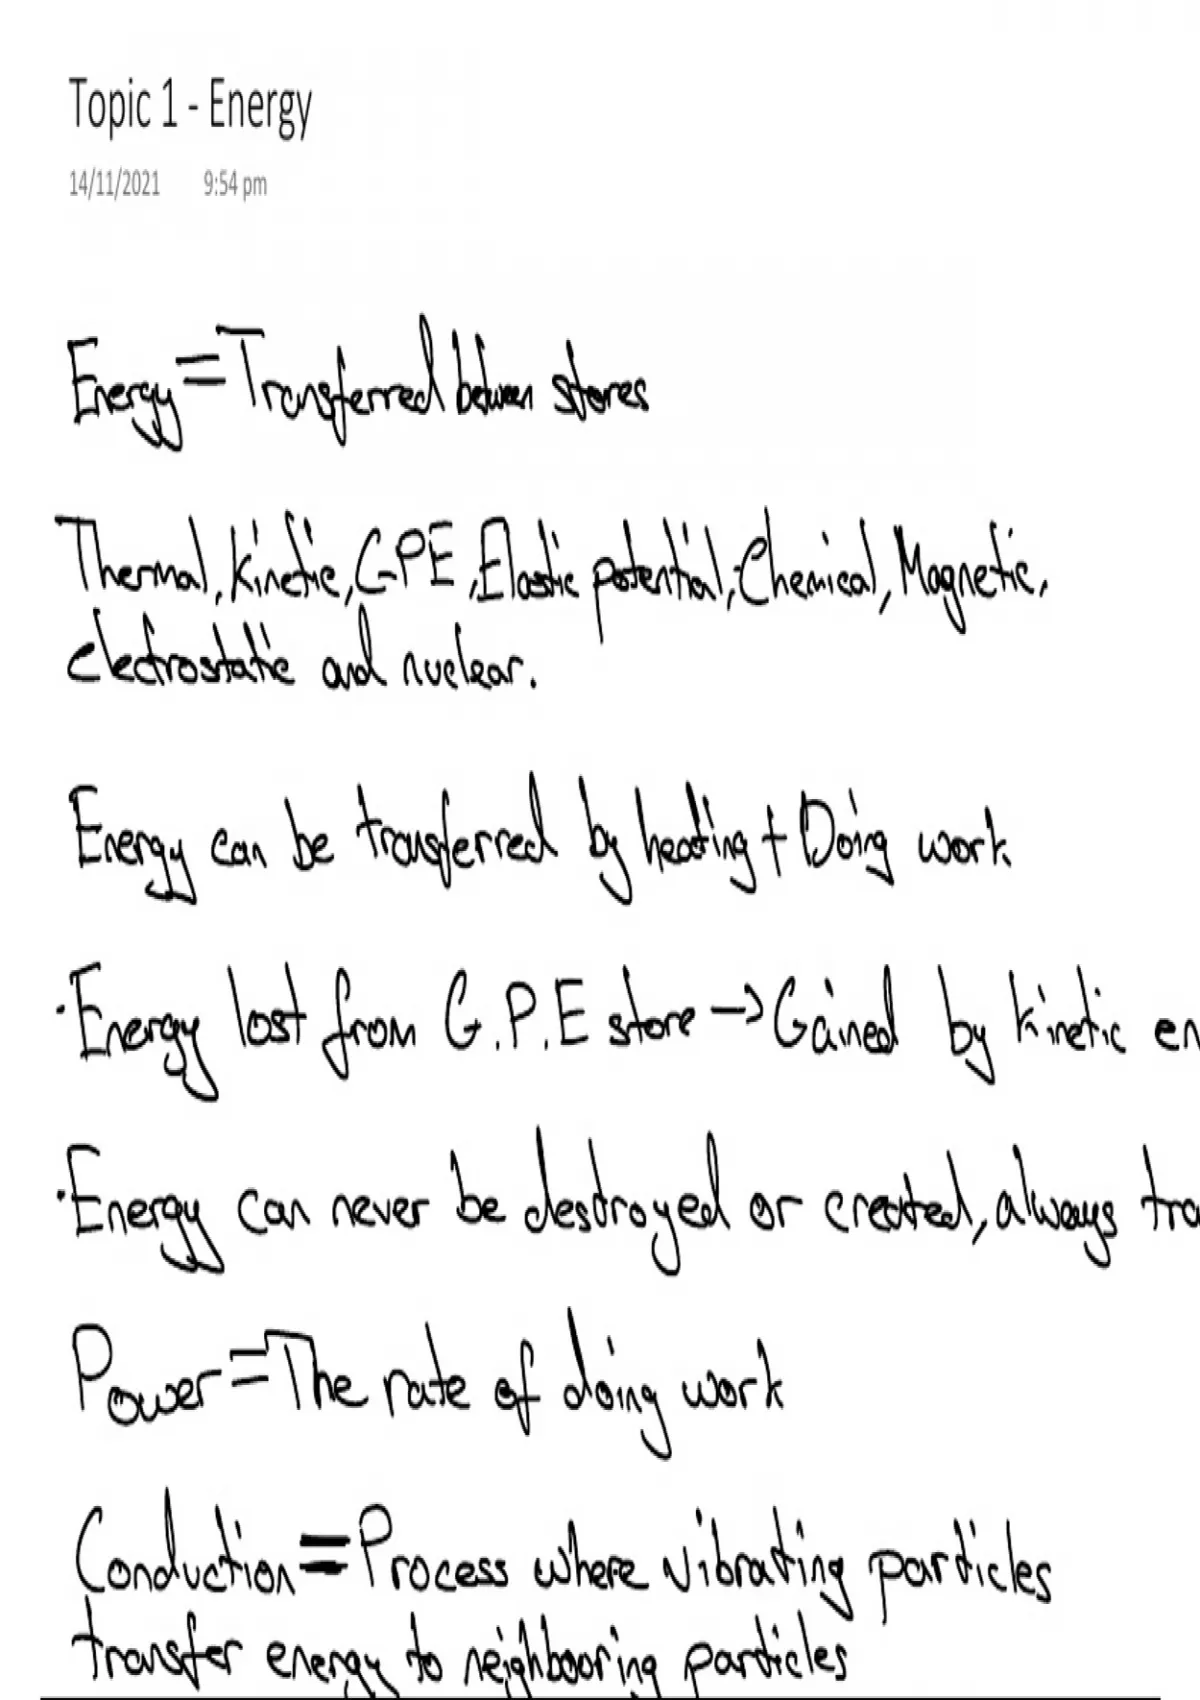 Topic 1 - Energy
14/11/2021 9:54 pm
Energy = Transferred between stores
Thermal, Kinetic, GPE, Elastic potential, Chemical, Magnetic,
electrostatic and nuclear.
Energy can be transferred by heating + Doing work
·Energy lost from G.P.E store → Gained by kinetic en
·Energy can never be destroyed or created, always tra
Power = The rate of doing work
Conduction = Process where vibrating particles
transfer energy to neighbouring particles